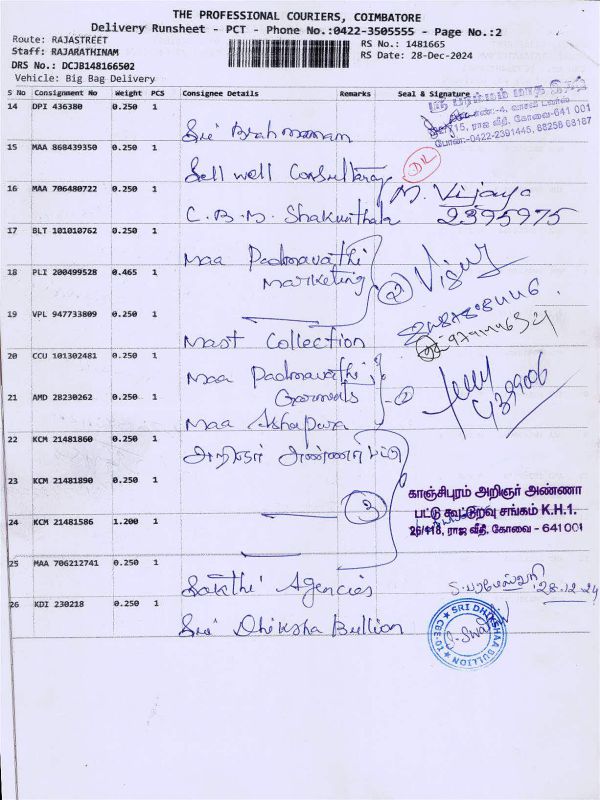 THE PROFESSIONAL COURIERS, COIMBATORE
Delivery Runsheet - PCT - Phone No.:0422-3505555 - Page No.:2
Route: RAJASTREET
Staff: RAJARATHINAM
RS No.: 1481665
RS Date: 28-Dec-2024
DRS No.: DCJB148166502
Vehicle: Big Bag Delivery
S No Consignment No Weight PCS Consignee Details Remarks Seal & Signature
14 DPI 436380 0.250 1
Sri Brahmanam
15 MAA 868439350 0.250 1
Sell well Consultancy
16 MAA 706480722 0.250 1
C.B.M. Shakunthala M. Vijaya
2395975
17 BLT 101010762 0.250 1
Maa Padmavathi
18 PLI 200499528 0.465 1
Marketing
2 Vijay
19 VPL 947733809 0.250 1
Mast Collection
20 CCU 101302481 0.250 1
Maa Padmavathi
21 AMD 28230262 0.250 1
Garments
Maa Ashapura
22 KCM 21481860 0.250 1
அறிஞர் அண்ணா பட்டு
23 KCM 21481890 0.250 1
24 KCM 21481586 1.200 1
காஞ்சிபுரம் அறிஞர் அண்ணா
பட்டு கூட்டுறவு சங்கம் K.H.1.
26/118, ராஜ வீதி, கோவை - 641 001
25 MAA 706212741 0.250 1
Sakthi Agencies
28.12.24
26 KDI 230218 0.250 1
Sri Dhiksha Bullion
SRI DHIKSHAA BULLION